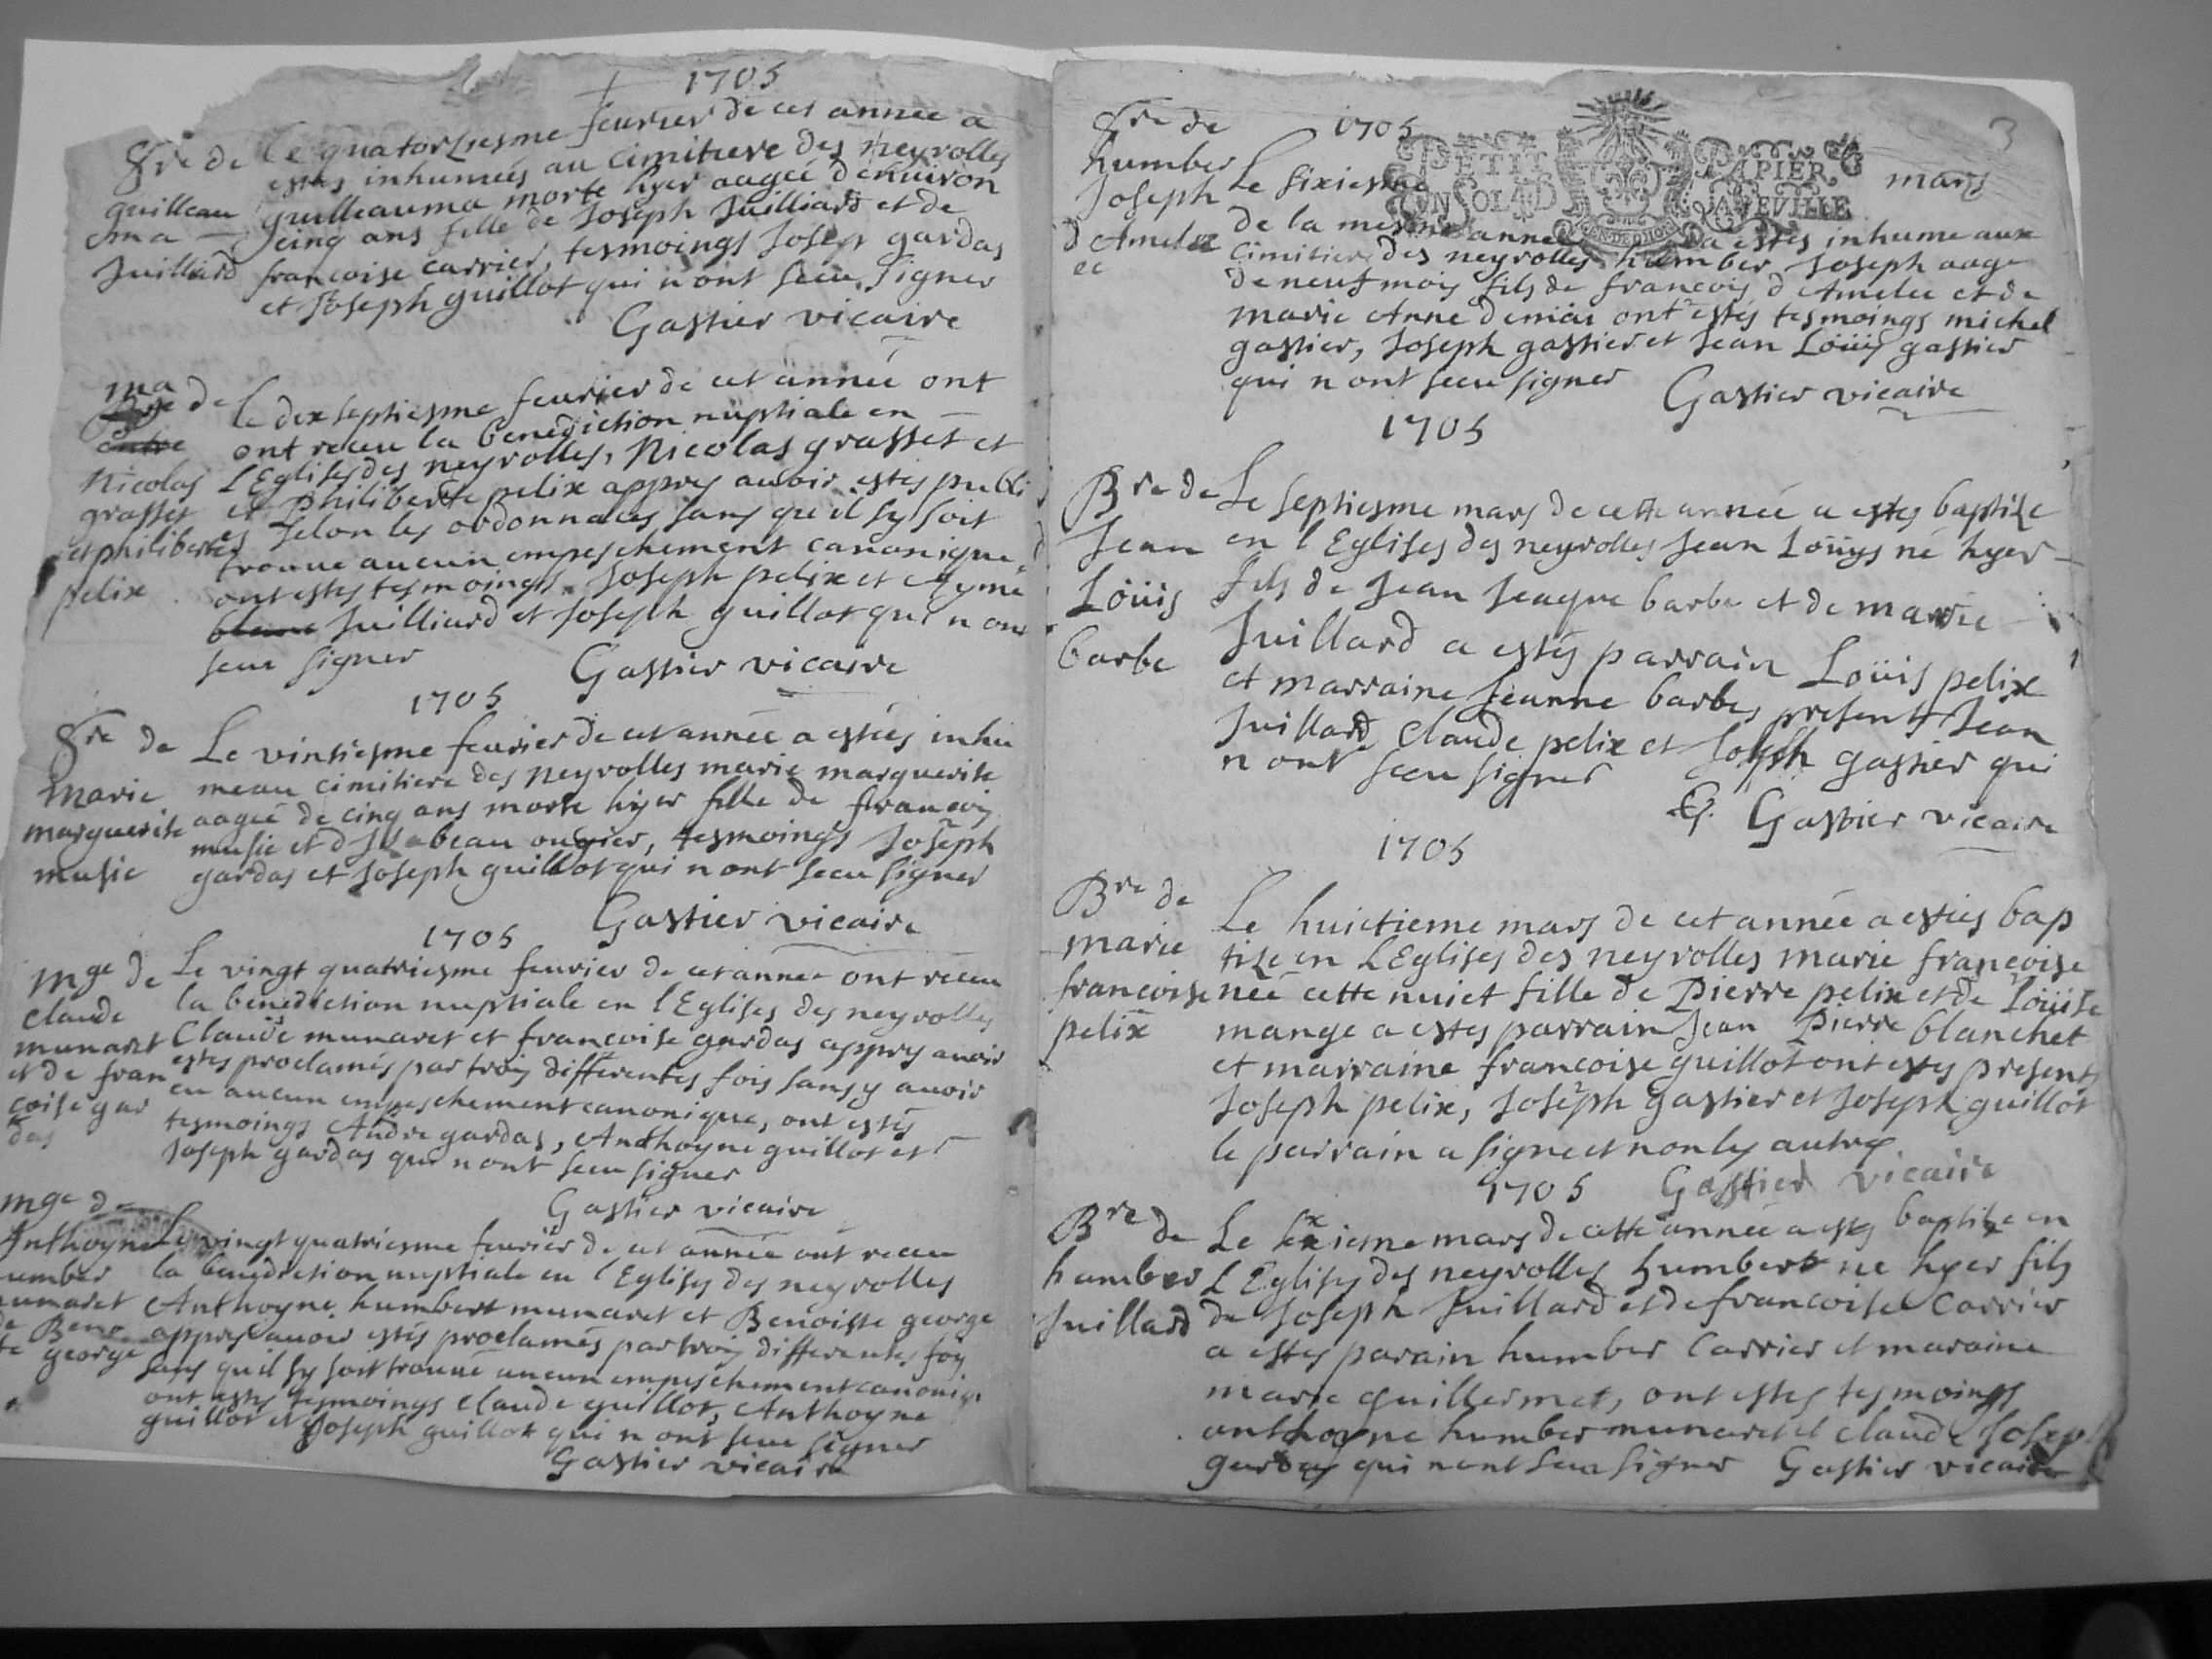 1705
Sre de Le quatorziesme feurier de cet année a
estes inhumées au cimitiere des neyrolles
guilleau guilleauma morte hyer aagée denuiron
ma cinq ans fille de Joseph Juilliard et de
Juilliard francoise carrier, tesmoings Joseph gardas
et Joseph guillot qui n ont sceu signer
Gastier vicaire
ma
ge de le dix septiesme feurier de cet année ont
entre ont receu la benediction nuptiale en
Nicolas L Eglises des neyrolles, Nicolas grasset et
grasset et Philiberte pelix appres auoir estes publi
et philiberte es selon les ordonnaces sans qu il sy soit
trouue aucun empeschement canonique,
pelix ont estes tesmoings Joseph pelix et Aymé
blanc Juilliard et Joseph guillot qui n ont
sceu signer
Gastier vicaire
1705
Sre de Le vintiesme feurier de cet année a estées inhu
marie meau cimitiere des neyrolles marie marguerite
marguerite aagée de cinq ans morte hyer fille de francois
musie et d Isabeau ougier, tesmoings Joseph
musie gardas et Joseph guillot qui n ont sceu signer
Gastier vicaire
1705
mge de Le vingt quatriesme feurier de cet année ont receu
la benediction nuptiale en l Eglises des neyrolles
claude Claude munaret et francoise gardas appres auoir
munaret estes proclamés par trois differentes fois sans y auoir
et de fran eu aucun empeschement canonique, ont estés
coise gar tesmoings Andre gardas, Anthoyne guillot et
das Joseph gardas qui n ont sceu signer
Gastier vicaire
mge de
Anthoyne Le vingt quatriesme feurier de cet année ont receu
umber la benediction nuptiale en l Eglises des neyrolles
unaret Anthoyne humbert munaret et Benoiste george
de Beno appres auoir estés proclamés par trois differentes foy
te george sans qu il sy soit trouué aucun empeschement canoniq
ont estes tesmoings claude guillot, Anthoyne
guillot et Joseph guillot qui n ont sceu signer
Gastier vicaire
3
Sre de 1705
PETIT PAPIER
UN SOL VEVILLE
humber
Joseph Le sixiesme mars
d Amelee de la mesme annee a estés inhume aux
cimitiere des neyrolles humber Joseph aage
de neuf mois fils de francois d Amelee et de
marie Anne ont estés tesmoings michel
gastier, Joseph gastier et Jean Loüis gastier
qui n ont sceu signer Gastier vicaire
1705
Bre de Le septiesme mars de cette année a estes baptize
Jean en l Eglises des neyrolles Jean Loüys né hyer
Loüis fils de Jean Jacque barbe et de marie
barbe Juillard a estés parrain Loüis pelix
et marraine Jeanne barbe, presents Jean
Juillard, Claude pelix et Joseph gastier qui
n ont sceu signer
G. Gastier vicaire
1705
Bre de Le huictieme mars de cet année a estées bap
marie tize en L Eglises des neyrolles marie françoise
francoise née cette nuict fille de Pierre pelix et de Loüise
pelix mange a estes parrain Jean Pierre blanchet
et marraine francoise guillot ont estes presents
Joseph pelix, Joseph gastier et Joseph guillot
le parrain a signe et non les autres
1705 Gastier vicaire
Bre de Le sixieme mars de cette année a estes baptize en
humber L Eglises des neyrolles humbert ne hyer fils
Juillard de Joseph Juillard et de francoise Carrier
a estes parain humber Carrier et maraine
marie guillermet, ont estes tesmoings
anthoyne humber munaret et claude Joseph
gardas qui n ont sceu signer Gastier vicaire